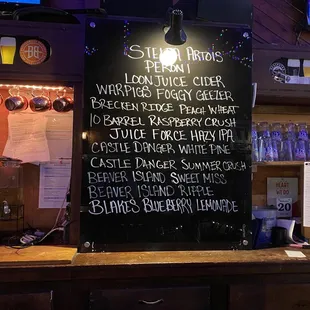 Stella Artois
Peroni
Loon Juice Cider
Warpigs Foggy Geezer
Brecken Ridge Peach Wheat
10 Barrel Raspberry Crush
Juice Force Hazy IPA
Castle Danger White Pine
Castle Danger Summer Crush
Beaver Island Sweet Miss
Beaver Island Ripple
Blakes Blueberry Lemonade
$20